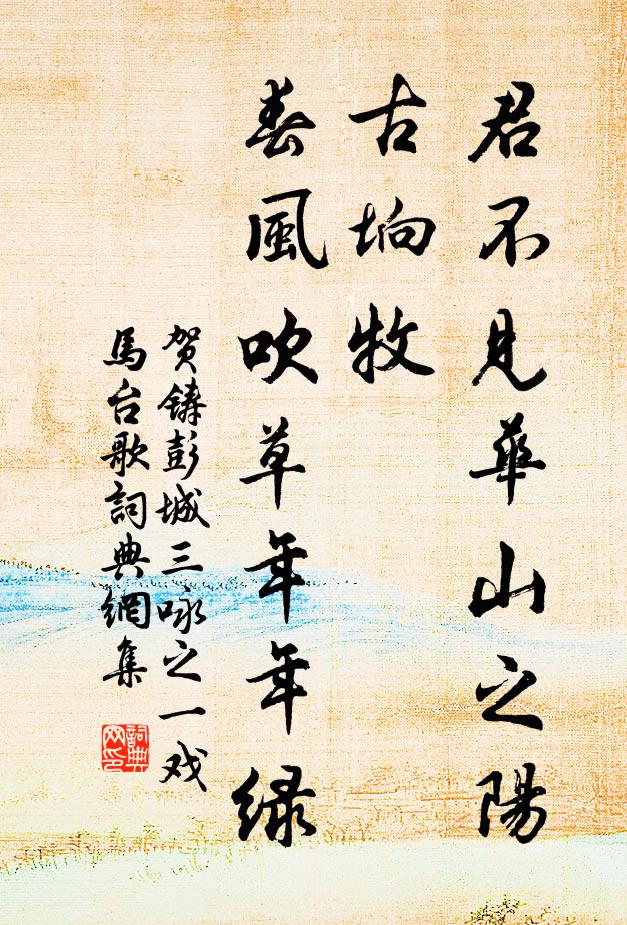 君不見華山之陽
古坰牧
春風吹草年年緑
贺鑄彭城三咏之一戏
馬台歌詞典網集
詞典网印